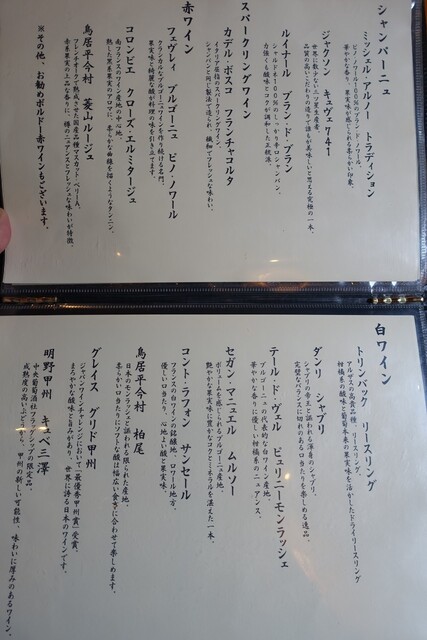 シャンパーニュ
ミッシェル・アルノー トラディション
ピノ・ノワール100%のブラン・ド・ノワール。
華やかな香り、果実味が感じられる柔らかい印象。
ジャクソン キュヴェ741
世界に数少ない三ツ星生産者。
品質の高いこだわりの造りで誰もが美味しいと思える究極の一本。
ルイナール ブラン・ド・ブラン
シャルドネ100%のしっかり辛口シャンパン。
力強くも酸味とコクが調和した正統派。
スパークリングワイン
カデル・ボスコ フランチャコルタ
イタリア屈指のスパークリングワイン。
シャンパンと同じ製法で造られ、繊細でフレッシュな味わい。
赤ワイン
フェヴレィ ブルゴーニュ ピノ・ノワール
クラシカルなブルゴーニュワインを作り続ける名門。
果実味と綺麗な酸が料理の味を引き立てます。
コロンビエ クローズ・エルミタージュ
南フランスのワイン産地の中心地。
熟した黒系果実のアロマに、柔らかな曲線を描くようなタンニン。
鳥居平今村 菱山ルージュ
フレンチオークで熟成させた国産品種マスカット・ベリーA。
赤系果実の上品な香りに、樽のニュアンスとフレッシュな味わいが特徴。
※その他、お勧めボルドー赤ワインもございます。
白ワイン
トリンバック リースリング
アルザスの高貴品種、リースリング。
柑橘系の酸味と葡萄本来の果実味を活かしたドライリースリング
ダンリ シャブリ
シャブリの帝王と謳われる渾身のシャブリ。
完璧なバランスに切れのある口当たりを楽しめる逸品。
テール・ド・ヴェル ピュリニーモンラッシェ
ブルゴーニュの代表的な白ワイン産地。
華やかな香りに優しい柑橘系のニュアンス。
セガン・マニュエル ムルソー
ボリュームを感じられるブルゴーニュ産地。
艶やかな果実味に豊かなコクとミネラルを湛えた一本。
コント・ラフォン サンセール
フランスの白ワインの銘醸地、ロワール地方。
優しい口当たり、心地よい酸と果実味。
鳥居平今村 柏尾
日本のモンラッシェと謳われる限られた産地。
柔らかい口当たりにソフトな酸は幅広い食事に合わせて楽しめます。
グレイス グリド甲州
ジャパンワインチャレンジにおいて「最優秀甲州賞」受賞。
まろやかな酸味と旨みがあり、世界に誇る日本のワインです。
明野甲州 キュベ三澤
中央葡萄酒社フラッグシップの限定品。
成熟度の高いぶどうから、甲州の新しい可能性、味わいに厚みのあるワイン。